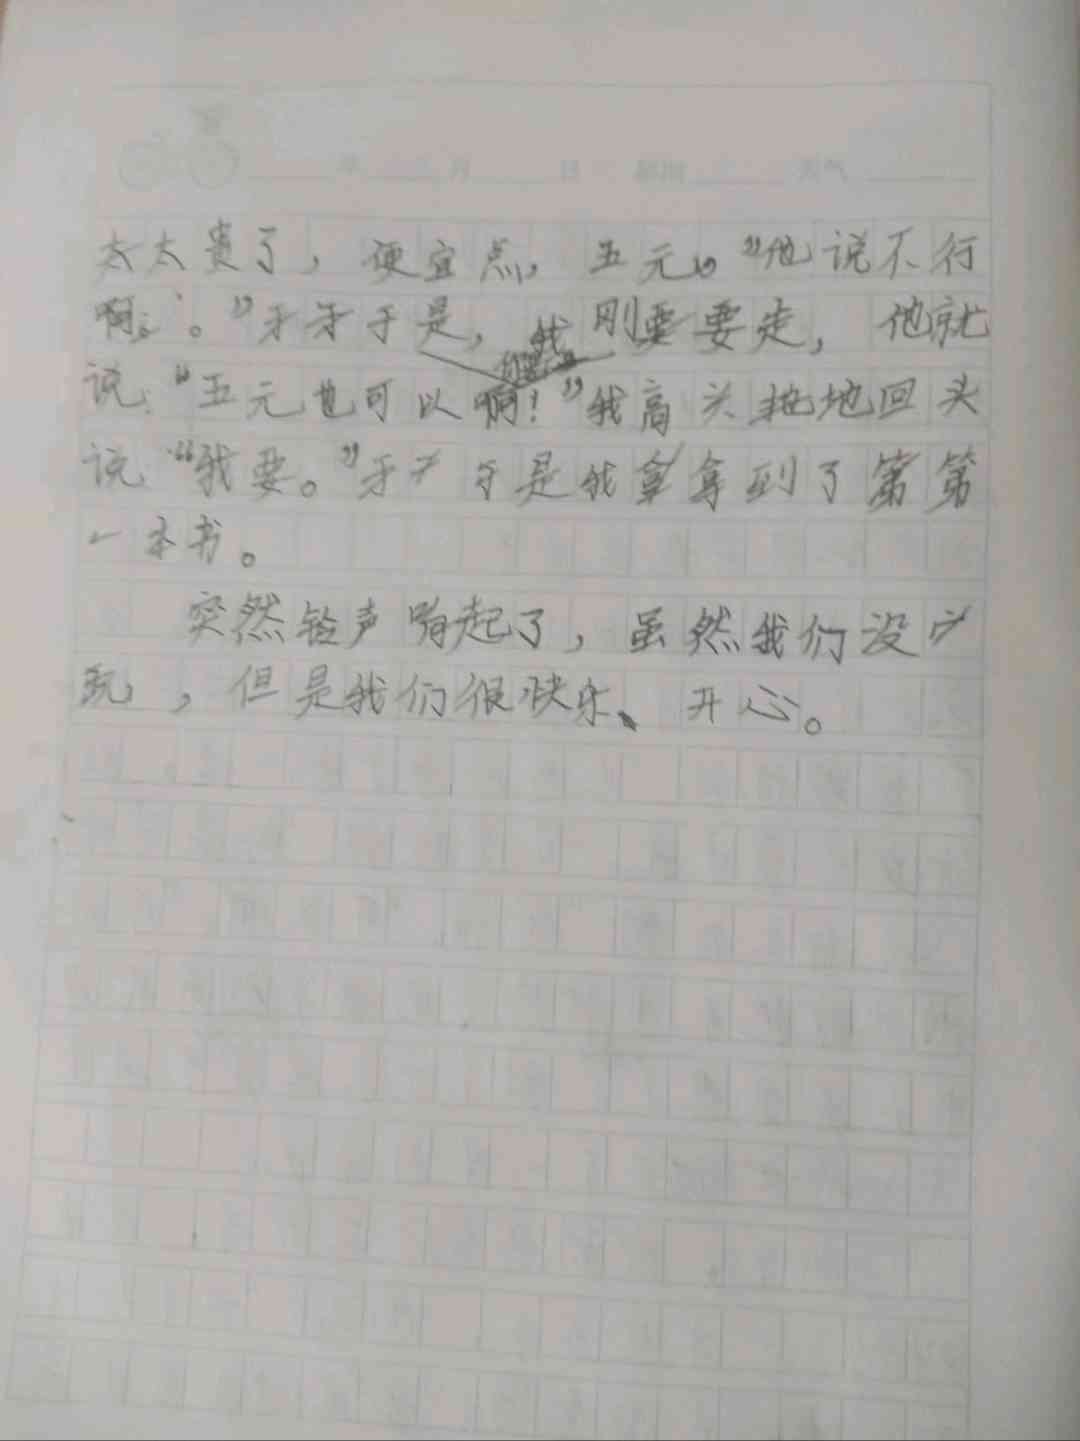 年 月 日 星期 天气
太太贵了，便宜点，五元。”他说不行
啊。”于是，我刚要要走，他就
说：“五元也可以啊！”我高头地回头
说“我要。”于是我拿拿到了第第
一本书。
突然铃声响起了，虽然我们没
玩，但是我们很快乐、开心。